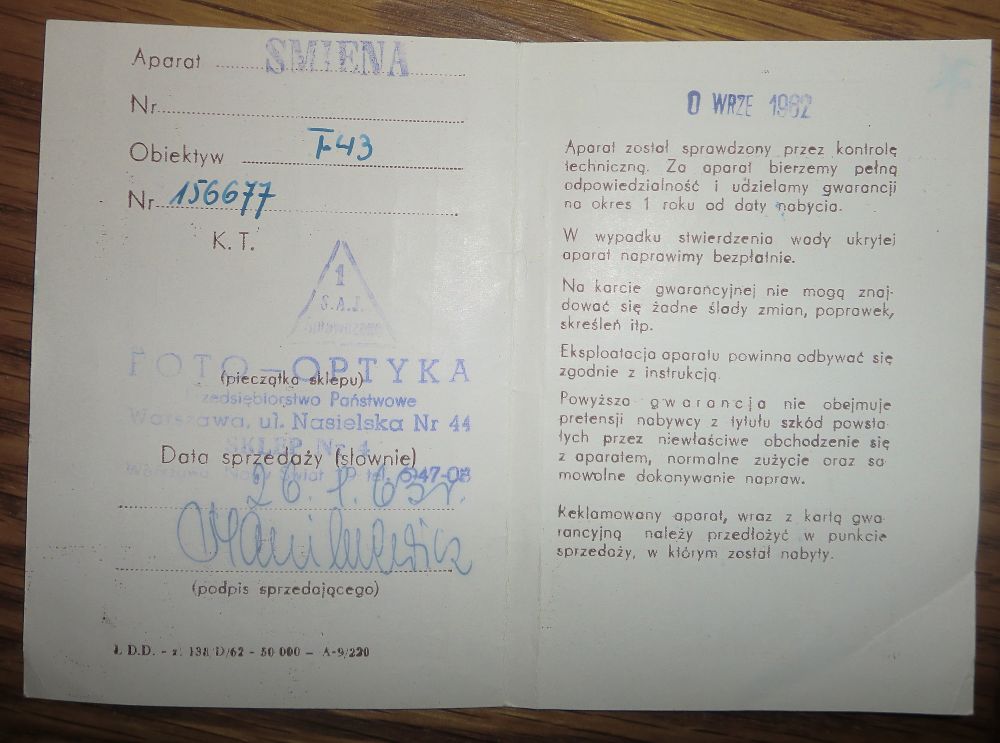 Aparat SMIENA
Nr.
Obiektyw T-43
Nr. 156677
K. T.
1
S.A.J.
FOTO-OPTYKA
(pieczątka sklepu)
Przedsiębiorstwo Państwowe
Warszawa, ul. Nasielska Nr 44
SKLEP Nr 4
Data sprzedaży (słownie)
Warszawa, Nowy Świat tel. 647-08
26. 1. 63 r.
(podpis sprzedającego)
Ł D.D. - z. 138/D/62 - 50 000 - A-9/220
0 WRZE 1962
Aparat został sprawdzony przez kontrolę
techniczną. Za aparat bierzemy pełną
odpowiedzialność i udzielamy gwarancji
na okres 1 roku od daty nabycia.
W wypadku stwierdzenia wady ukrytej
aparat naprawimy bezpłatnie.
Na karcie gwarancyjnej nie mogą znaj-
dować się żadne ślady zmian, poprawek,
skreśleń itp.
Eksploatacja aparatu powinna odbywać się
zgodnie z instrukcją.
Powyższa gwarancja nie obejmuje
pretensji nabywcy z tytułu szkód powsta-
łych przez niewłaściwe obchodzenie się
z aparatem, normalne zużycie oraz sa
mowolne dokonywanie napraw.
Reklamowany aparat, wraz z kartą gwa
rancyjną należy przedłożyć w punkcie
sprzedaży, w którym został nabyty.